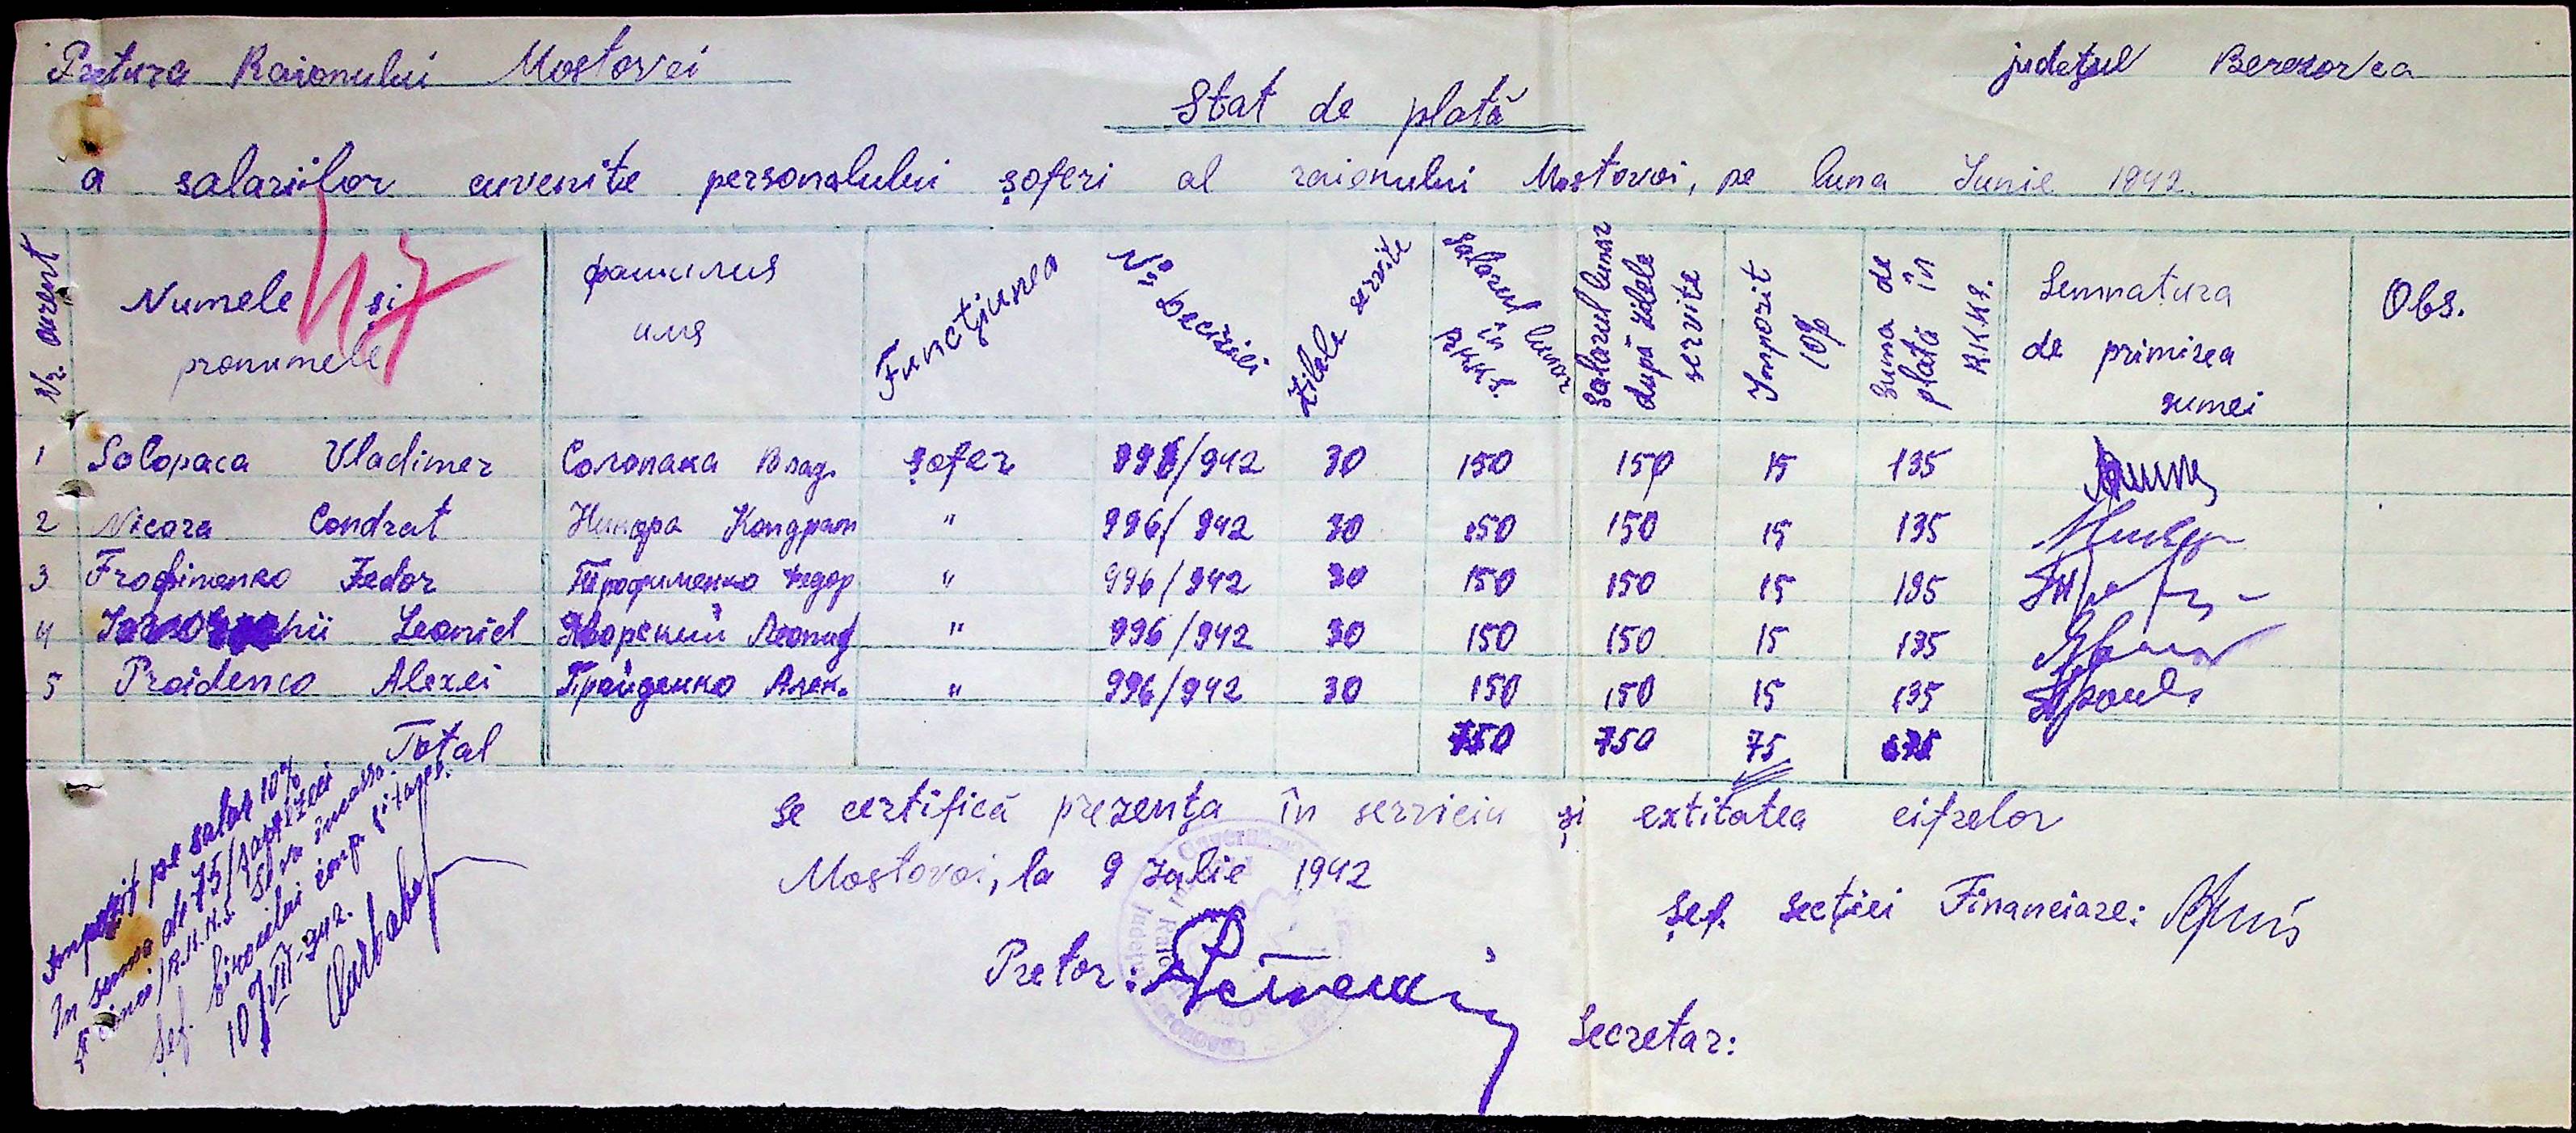 Pretura Raionului Mostovoi
județul Berezovca
Stat de plată
a salariilor cuvenite personalului șoferi al raionului Mostovoi, pe luna Iunie 1942.
Nr. curent | Numele și pronumele | фамилия имя | Funcțiunea | № Deciziei | Zilele servite | Salarul lunar în RKKS. | Salarul lunar după zilele servite | Impozit 10% | Suma de plată în R.K.K.S. | Semnatura de primirea sumei | Obs.
47
1 Solopaca Vladimer Солопака Влад. șofer 996/942 30 150 150 15 135
2 Nicora Condrat Никора Кондрат " 996/942 30 150 150 15 135
3 Trofimenko Fedor Трофименко Федор " 996/942 30 150 150 15 135
4 Leonid Яворский Леонид " 996/942 30 150 150 15 135
5 Proidenco Alexei Пройденко Алек. " 996/942 30 150 150 15 135
Total 750 750 75 675
Se certifică prezența în serviciu și extitatea cifrelor
Mostovoi, la 9 Iulie 1942
Pretor:
Șef. Secției Financiare:
Secretar:
Impozit pe salar 10%
în suma de 75/șaptezeci
și cinci/R.K.K.S. Se va încassa
Șef. biroului imp. și taxes.
10/VII-942.